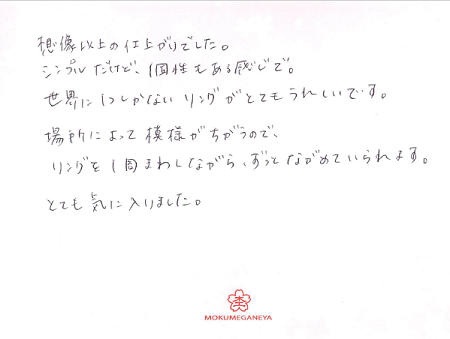 想像以上の仕上がりでした。
シンプルだけど、個性もある感じで。
世界に1つしかないリングがとてもうれしいです。
場所によって模様がちがうので、
リングを1周まわしながら、ずっとながめていられます。
とても気に入りました。
杢
MOKUMEGANEYA